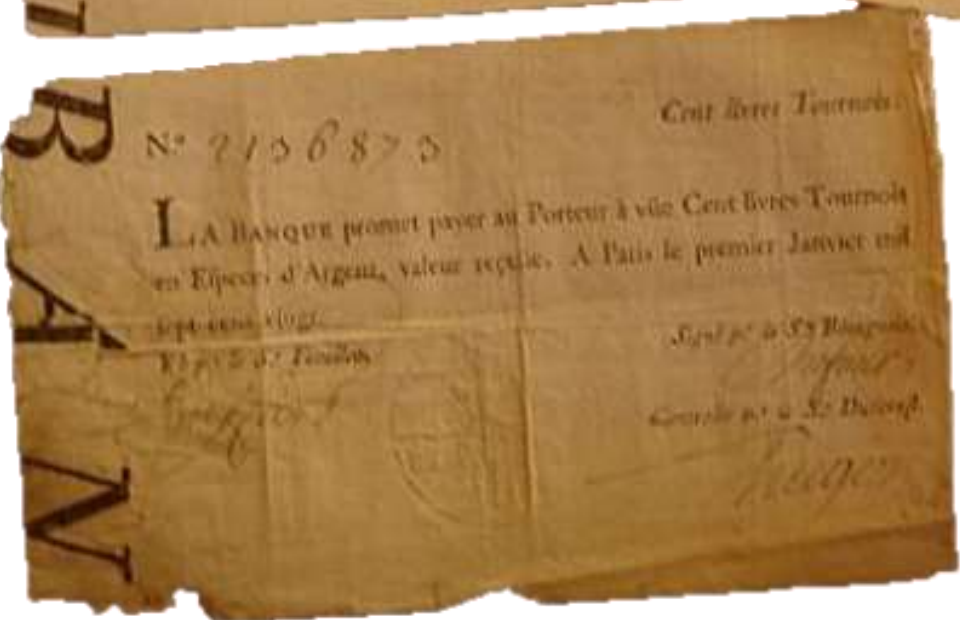 Cent livres Tournois.
N.° 2136873
LA BANQUE promet payer au Porteur à vûe Cent livres Tournois
en Especes d'Argent, valeur reçûe. A Paris le premier Janvier mil
sept cens vingt.
Signé p.r le S.r Bourgeois.
Vû p.r le S.r Fenellon.
Controllé p.r le S.r Durevest.
BAN